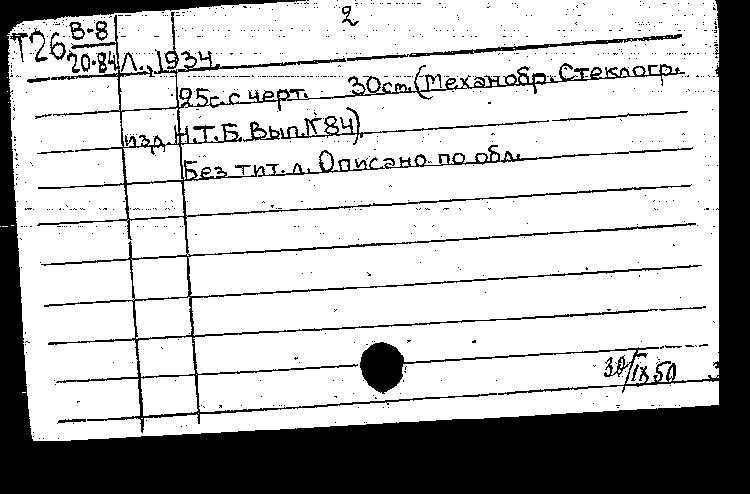 2
Т26 В-8
20-84 Л., 1934.
25с. с черт. 30см. (Механобр. Стеклогр.
изд. Н.Т.Б. Вып. №84).
Без тит. л. Описано по обл.
30/IX 50